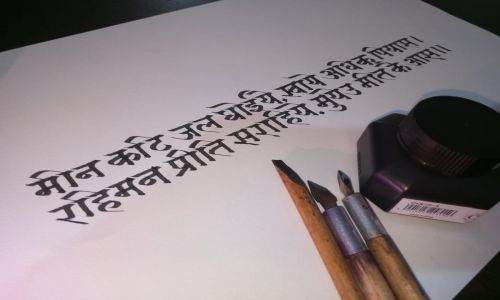 मीन काटि जल धोइये, खाये अधिक पियास।
रहिमन प्रीति सराहिये, मुयउ मीत के आस।।